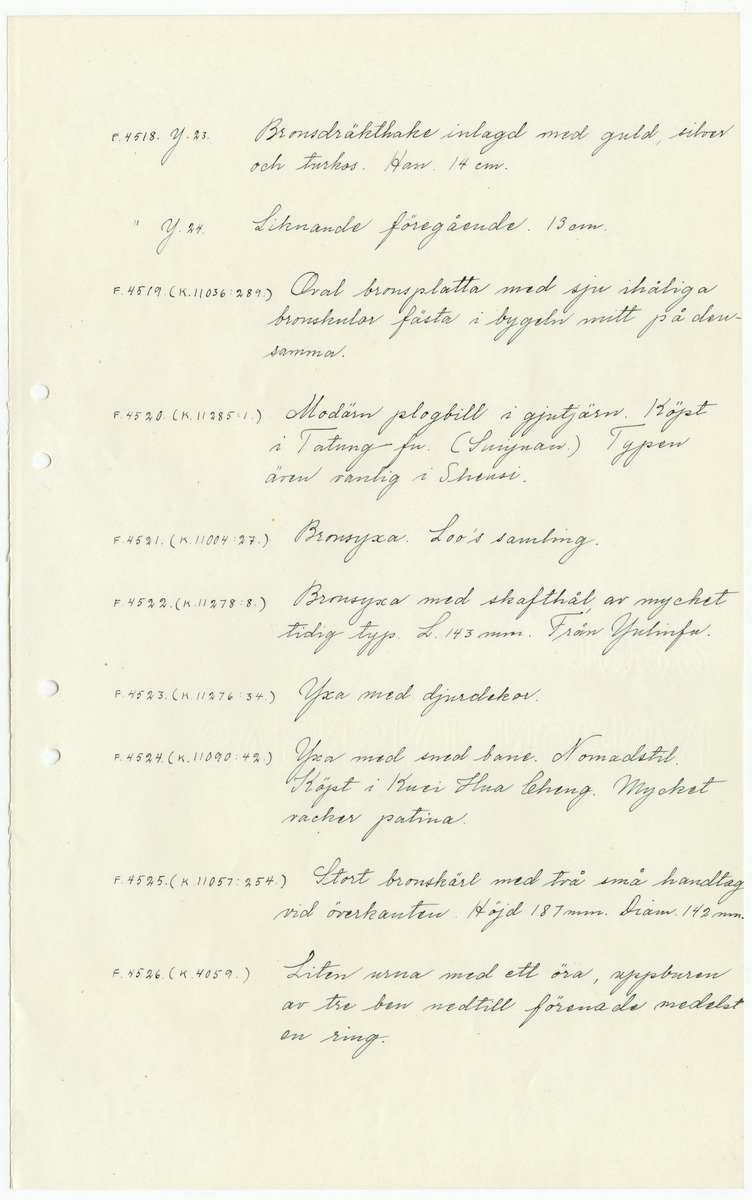 F.4518. Y.23. Bronsdräkthake inlagd med guld, silver
och turkos. Han. 14 cm.
" Y.24. Liknande föregående. 13 cm.
F.4519. (K.11036:289.) Oval bronsplatta med sju ihåliga
bronskulor fästa i bygeln mitt på den-
samma.
F.4520. (K.11285:1.) Modärn plogbill i gjutjärn. Köpt
i Tatung fu. (Suiyuan.) Typen
även vanlig i Shensi.
F.4521. (K.11004:27.) Bronsyxa. Loo's samling.
F.4522. (K.11278:8.) Bronsyxa med skafthål, av mycket
tidig typ. L. 143 mm. Från Yulinfu.
F.4523. (K.11276:34.) Yxa med djurdekor.
F.4524. (K.11090:42.) Yxa med sned bane. Nomadstil.
Köpt i Kuei Hua Cheng. Mycket
vacker patina.
F.4525. (K.11057:254.) Stort bronskärl med två små handtag
vid överkanten. Höjd 187 mm. Diam. 142 mm.
F.4526. (K.4059.) Liten urna med ett öra, uppburen
av tre ben nedtill förenade medelst
en ring.